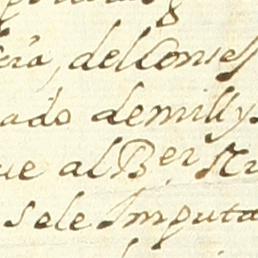 era, del Conse
ado demill y
ue al B.er
sele Imputa